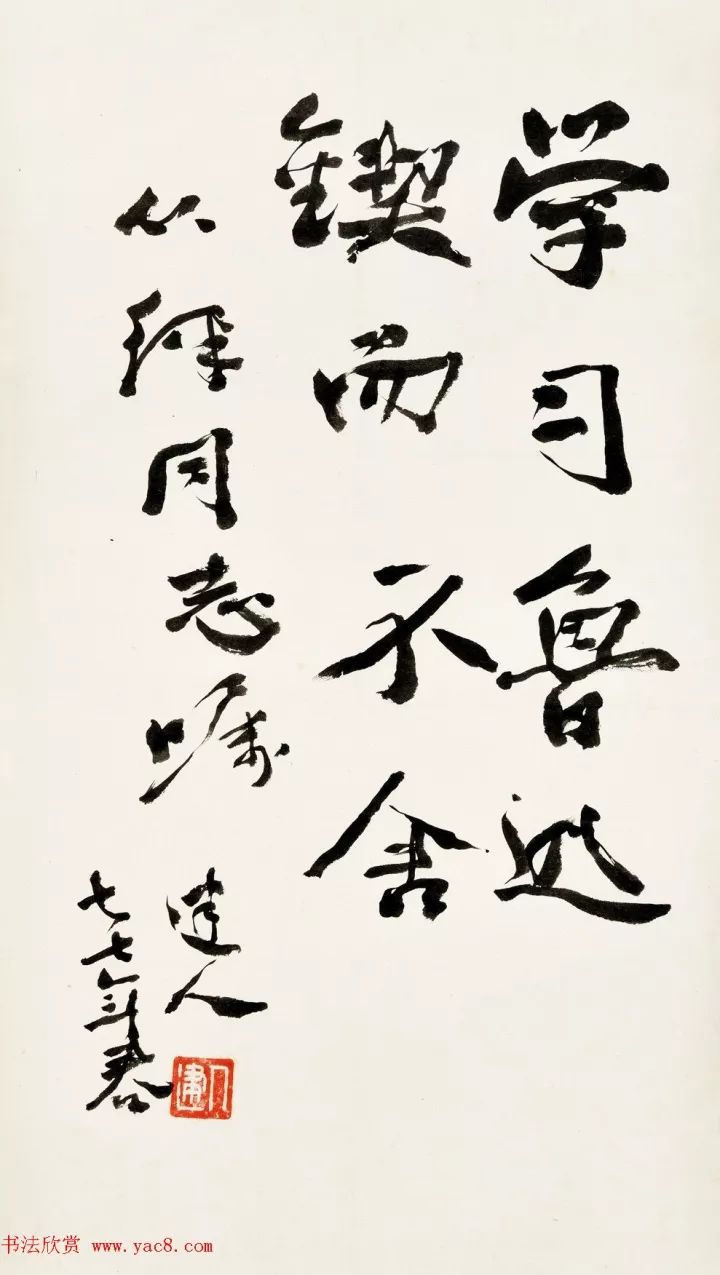 学习鲁迅
鍥而不舍
同志嘱
建人
七七年春
建人
书法欣赏 www.yac8.com